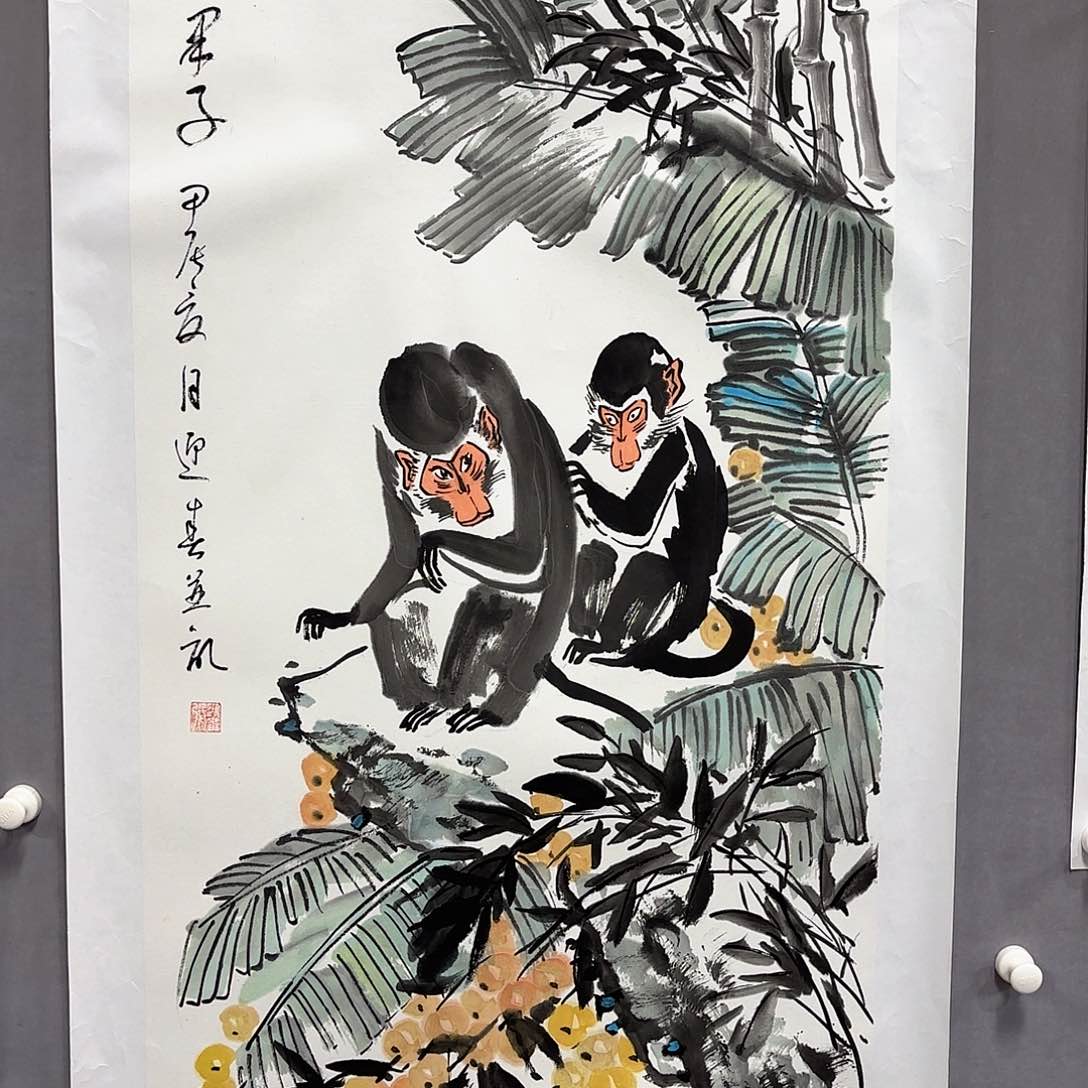 果子 甲辰夏月迎春並記